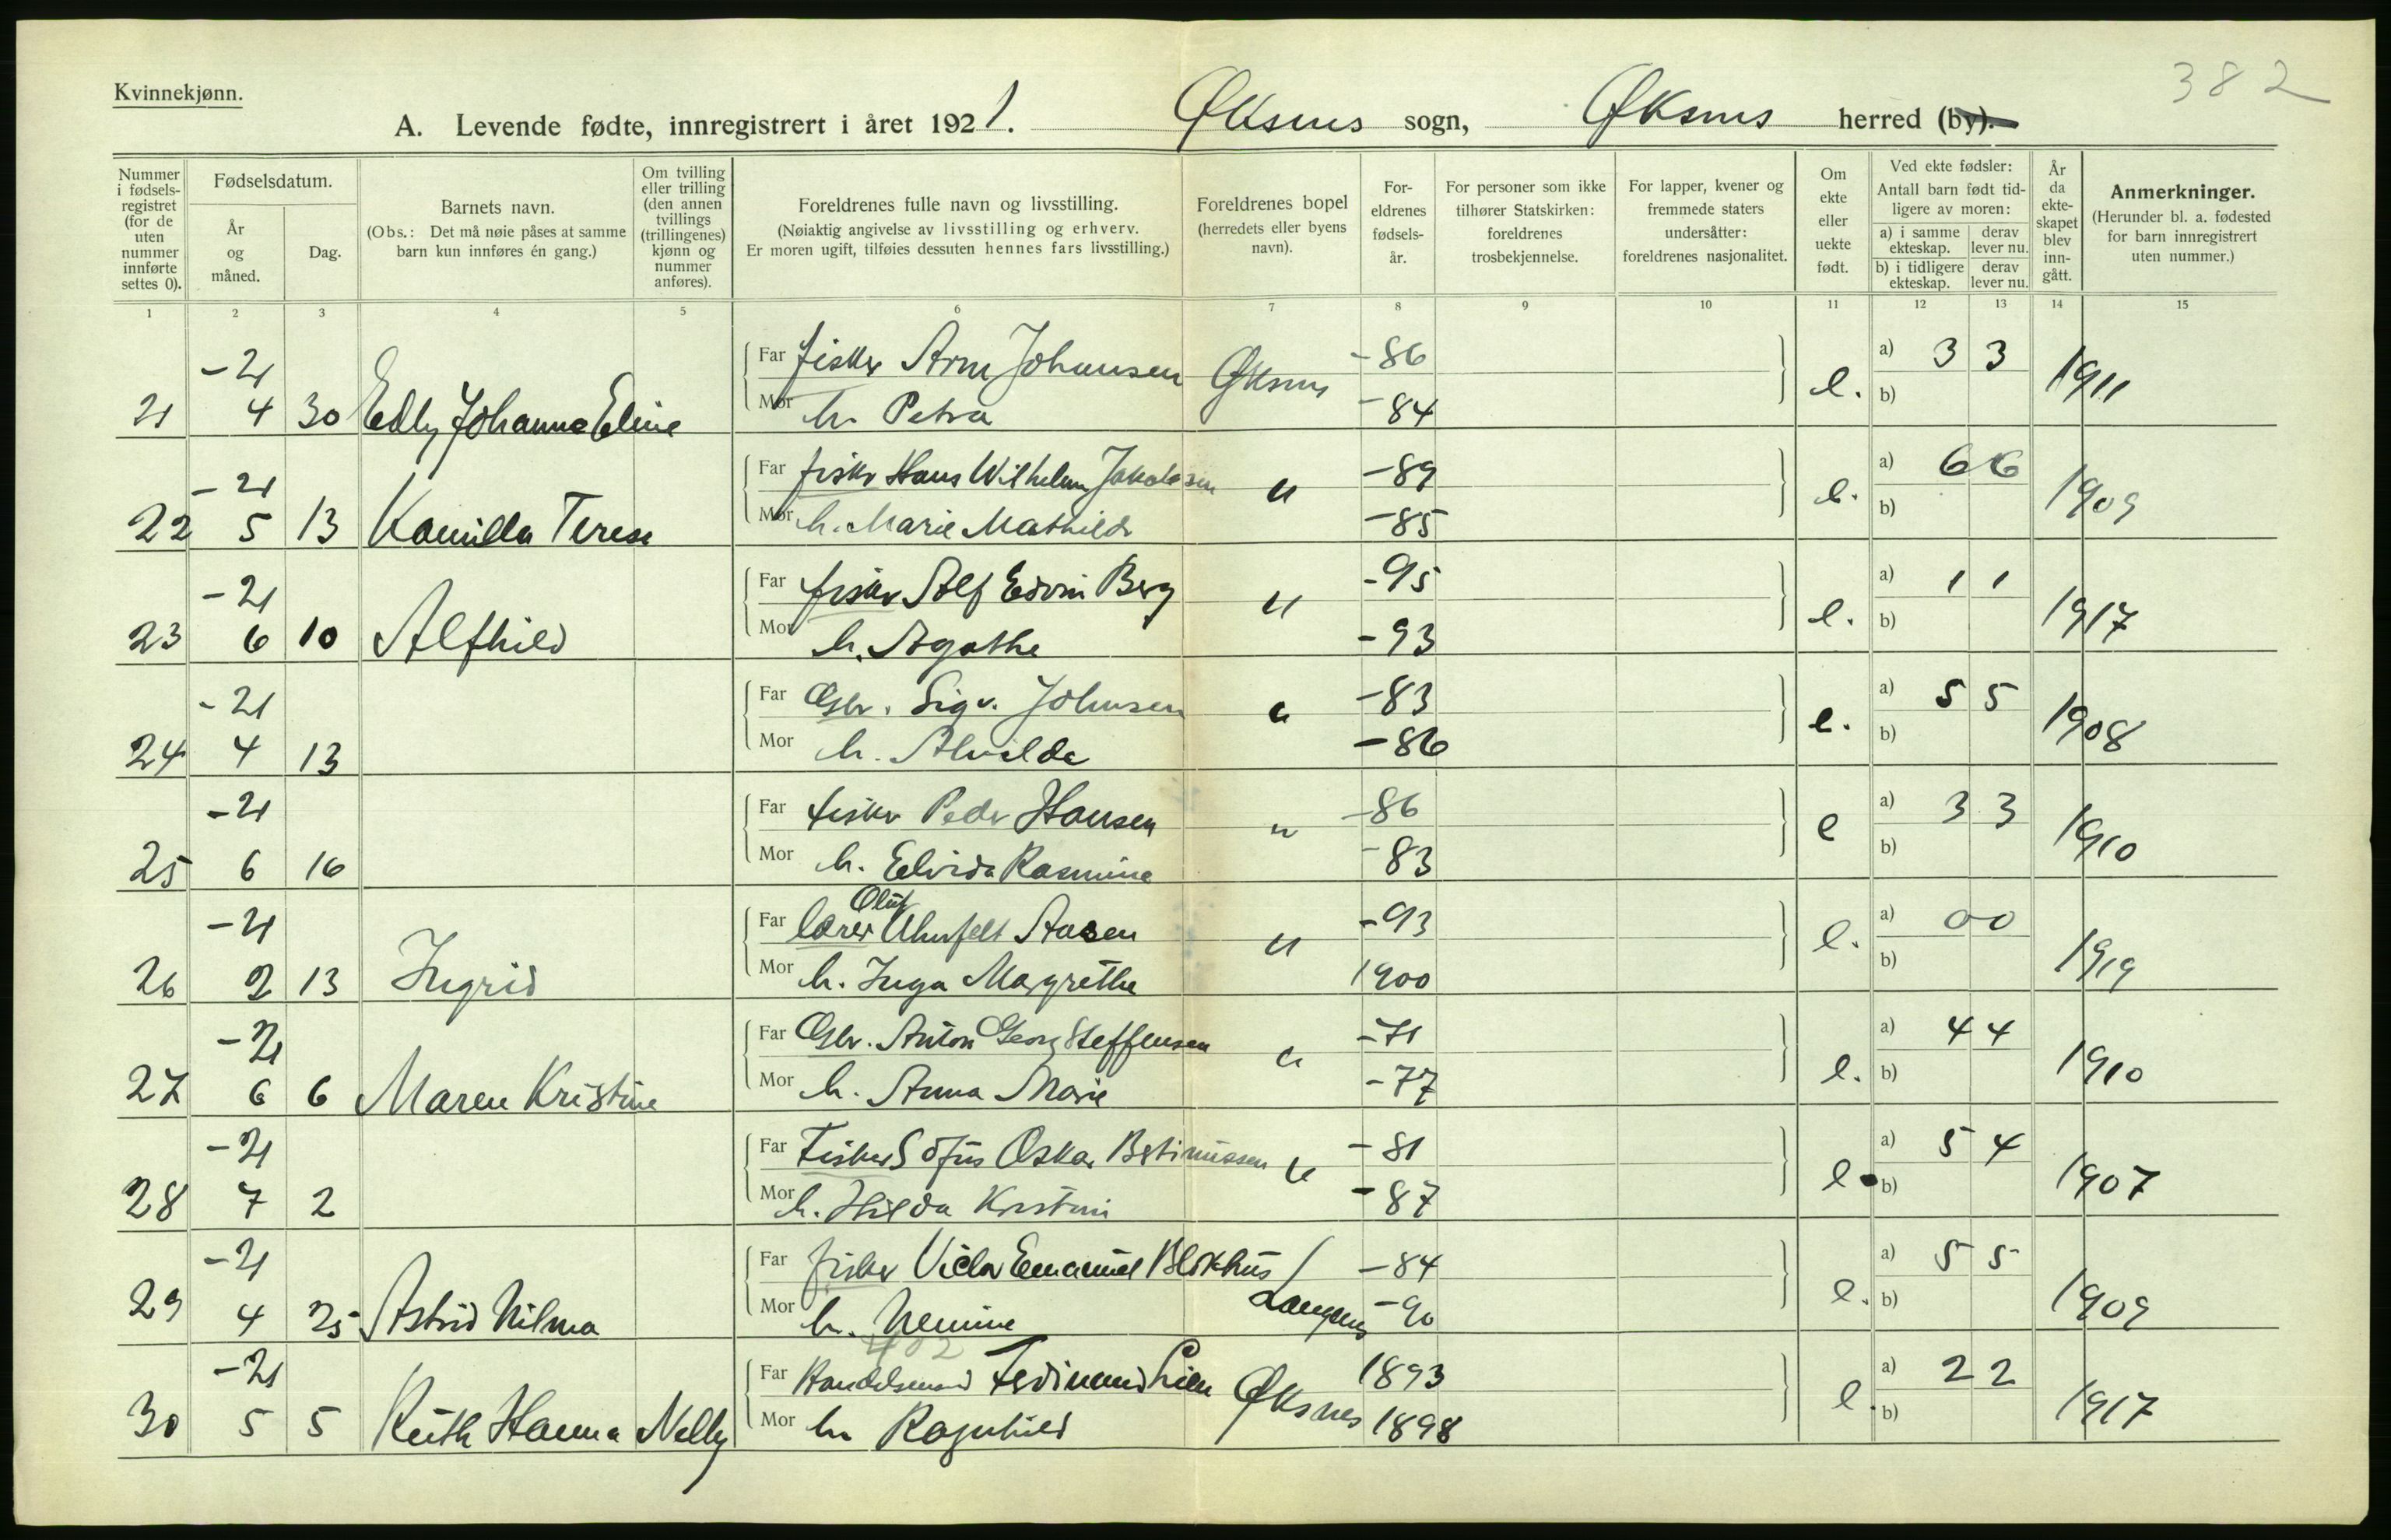 382
Kvinnekjønn.
A. Levende fødte, innregistrert i året 1921. Øksnes sogn, Øksnes herred (by).
Nummer i fødsels-registret (for de uten nummer innførte settes 0).
Fødselsdatum.
År og måned.
Dag.
Barnets navn.
(Obs.: Det må nøie påses at samme barn kun innføres én gang.)
Om tvilling eller trilling (den annen tvillings (trillingenes) kjønn og nummer anføres).
Foreldrenes fulle navn og livsstilling.
(Nøiaktig angivelse av livsstilling og erhverv.
Er moren ugift, tilføies dessuten hennes fars livsstilling.)
Foreldrenes bopel (herredets eller byens navn).
For-eldrenes fødsels-år.
For personer som ikke tilhører Statskirken: foreldrenes trosbekjennelse.
For lapper, kvener og fremmede staters undersåtter: foreldrenes nasjonalitet.
Om ekte eller uekte født.
Ved ekte fødsler:
Antall barn født tid-ligere av moren:
a) i samme ekteskap. derav lever nu.
b) i tidligere ekteskap. derav lever nu.
År da ekte-skapet blev inn-gått.
Anmerkninger.
(Herunder bl. a. fødested for barn innregistrert uten nummer.)
1 2 3 4 5 6 7 8 9 10 11 12 13 14 15
-21 Far fisker Arne Johansen Øksnes -86 a) 3 3
21 4 30 Edly Johanne Eline Mor h. Petra -84 e. b) 1911
-21 Far fisker Hans Wilhelm Jakobsen " -89 a) 6 6
22 5 13 Kamilla Terese Mor h. Marie Mathilde -85 e. b) 1909
-21 Far fisker Alf Edvin Berg " -95 a) 1 1
23 6 10 Alfhild Mor h. Agathe -93 e. b) 1917
-21 Far Gbr. Sigv. Johnsen " -83 a) 5 5
24 4 13 Mor h. Alvilde -86 e. b) 1908
-21 Far fisker Peder Hansen " -86 a) 3 3
25 6 16 Mor h. Edvida Rasmine -83 e b) 1910
Oluf
-21 Far lærer Uhrfelt Aasen " -93 a) 0 0
26 2 13 Ingrid Mor h. Inga Margrethe 1900 e. b) 1919
-21 Far Gbr. Anton Georg Steffensen " -71 a) 4 4
27 6 6 Maren Kristine Mor h. Anna Marie -77 e. b) 1910
-21 Far Fisker Sofus Oskar Bertinussen " -81 a) 5 4
28 7 2 Mor h. Hilda Kristine -87 e. b) 1907
-21 Far fisker Victor Emanuel Blokhus / -84 a) 5 5
29 4 25 Astrid Nilma Mor h. Nemine Langenes -90 e. b) 1909
402
-21 Far Handelsmand Ferdinand Lien Øksnes 1893 a) 2 2
30 5 5 Ruth Hanna Nelly Mor h. Ragnhild 1898 e. b) 1917